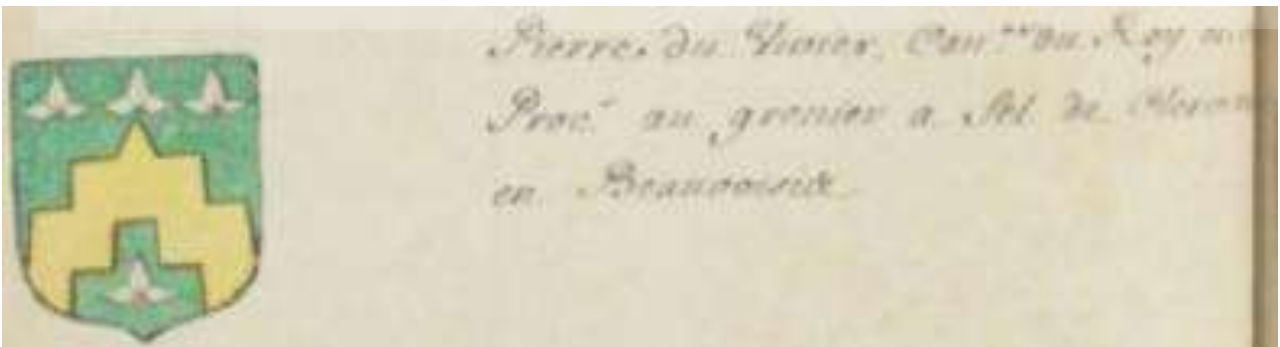 Pierre du Vivier, Con.er du Roy
Proc.r au grenier a Sel de
en Beauvoisie